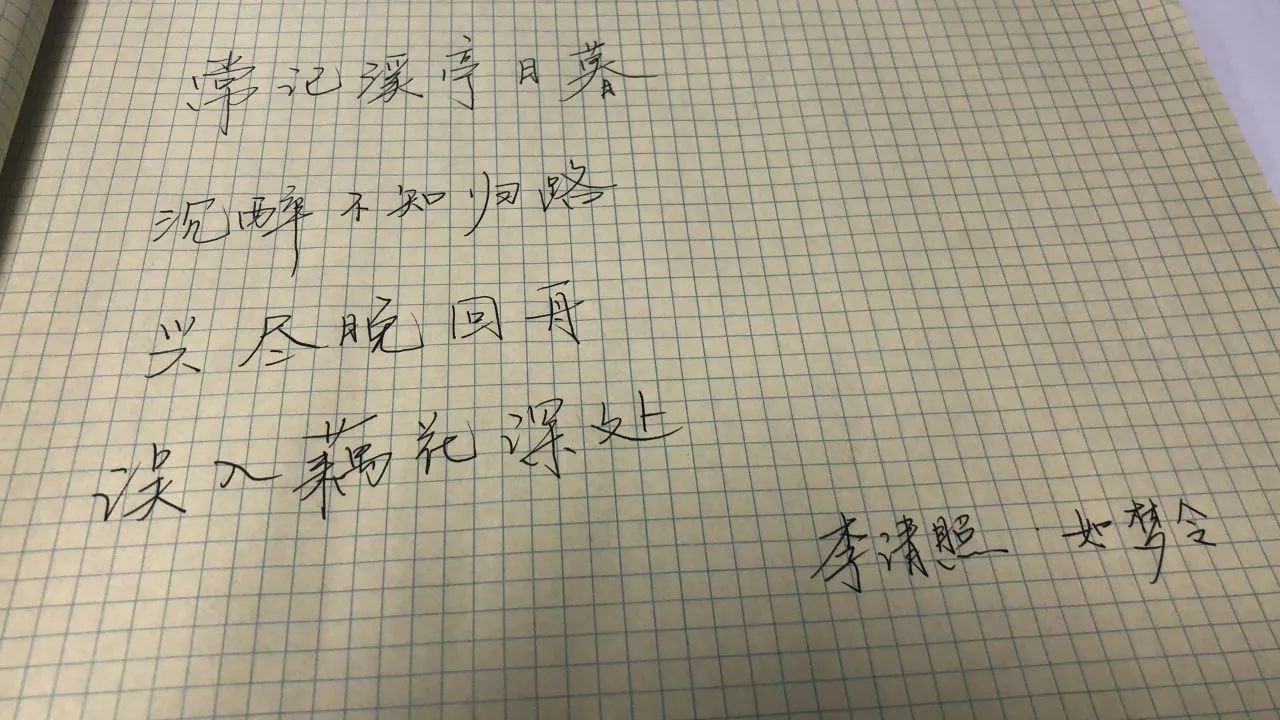 常记溪亭日暮
沉醉不知归路
兴尽晚回舟
误入藕花深处
李清照·如梦令